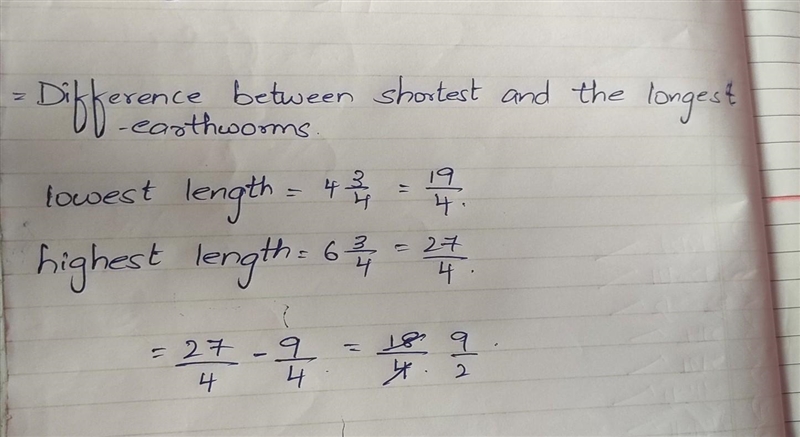 = Difference between shortest and the longest
-earthworms.
lowest length = 4 3/4 = 19/4.
highest length = 6 3/4 = 27/4.
= 27/4 - 9/4. = 18/4. 9/2.